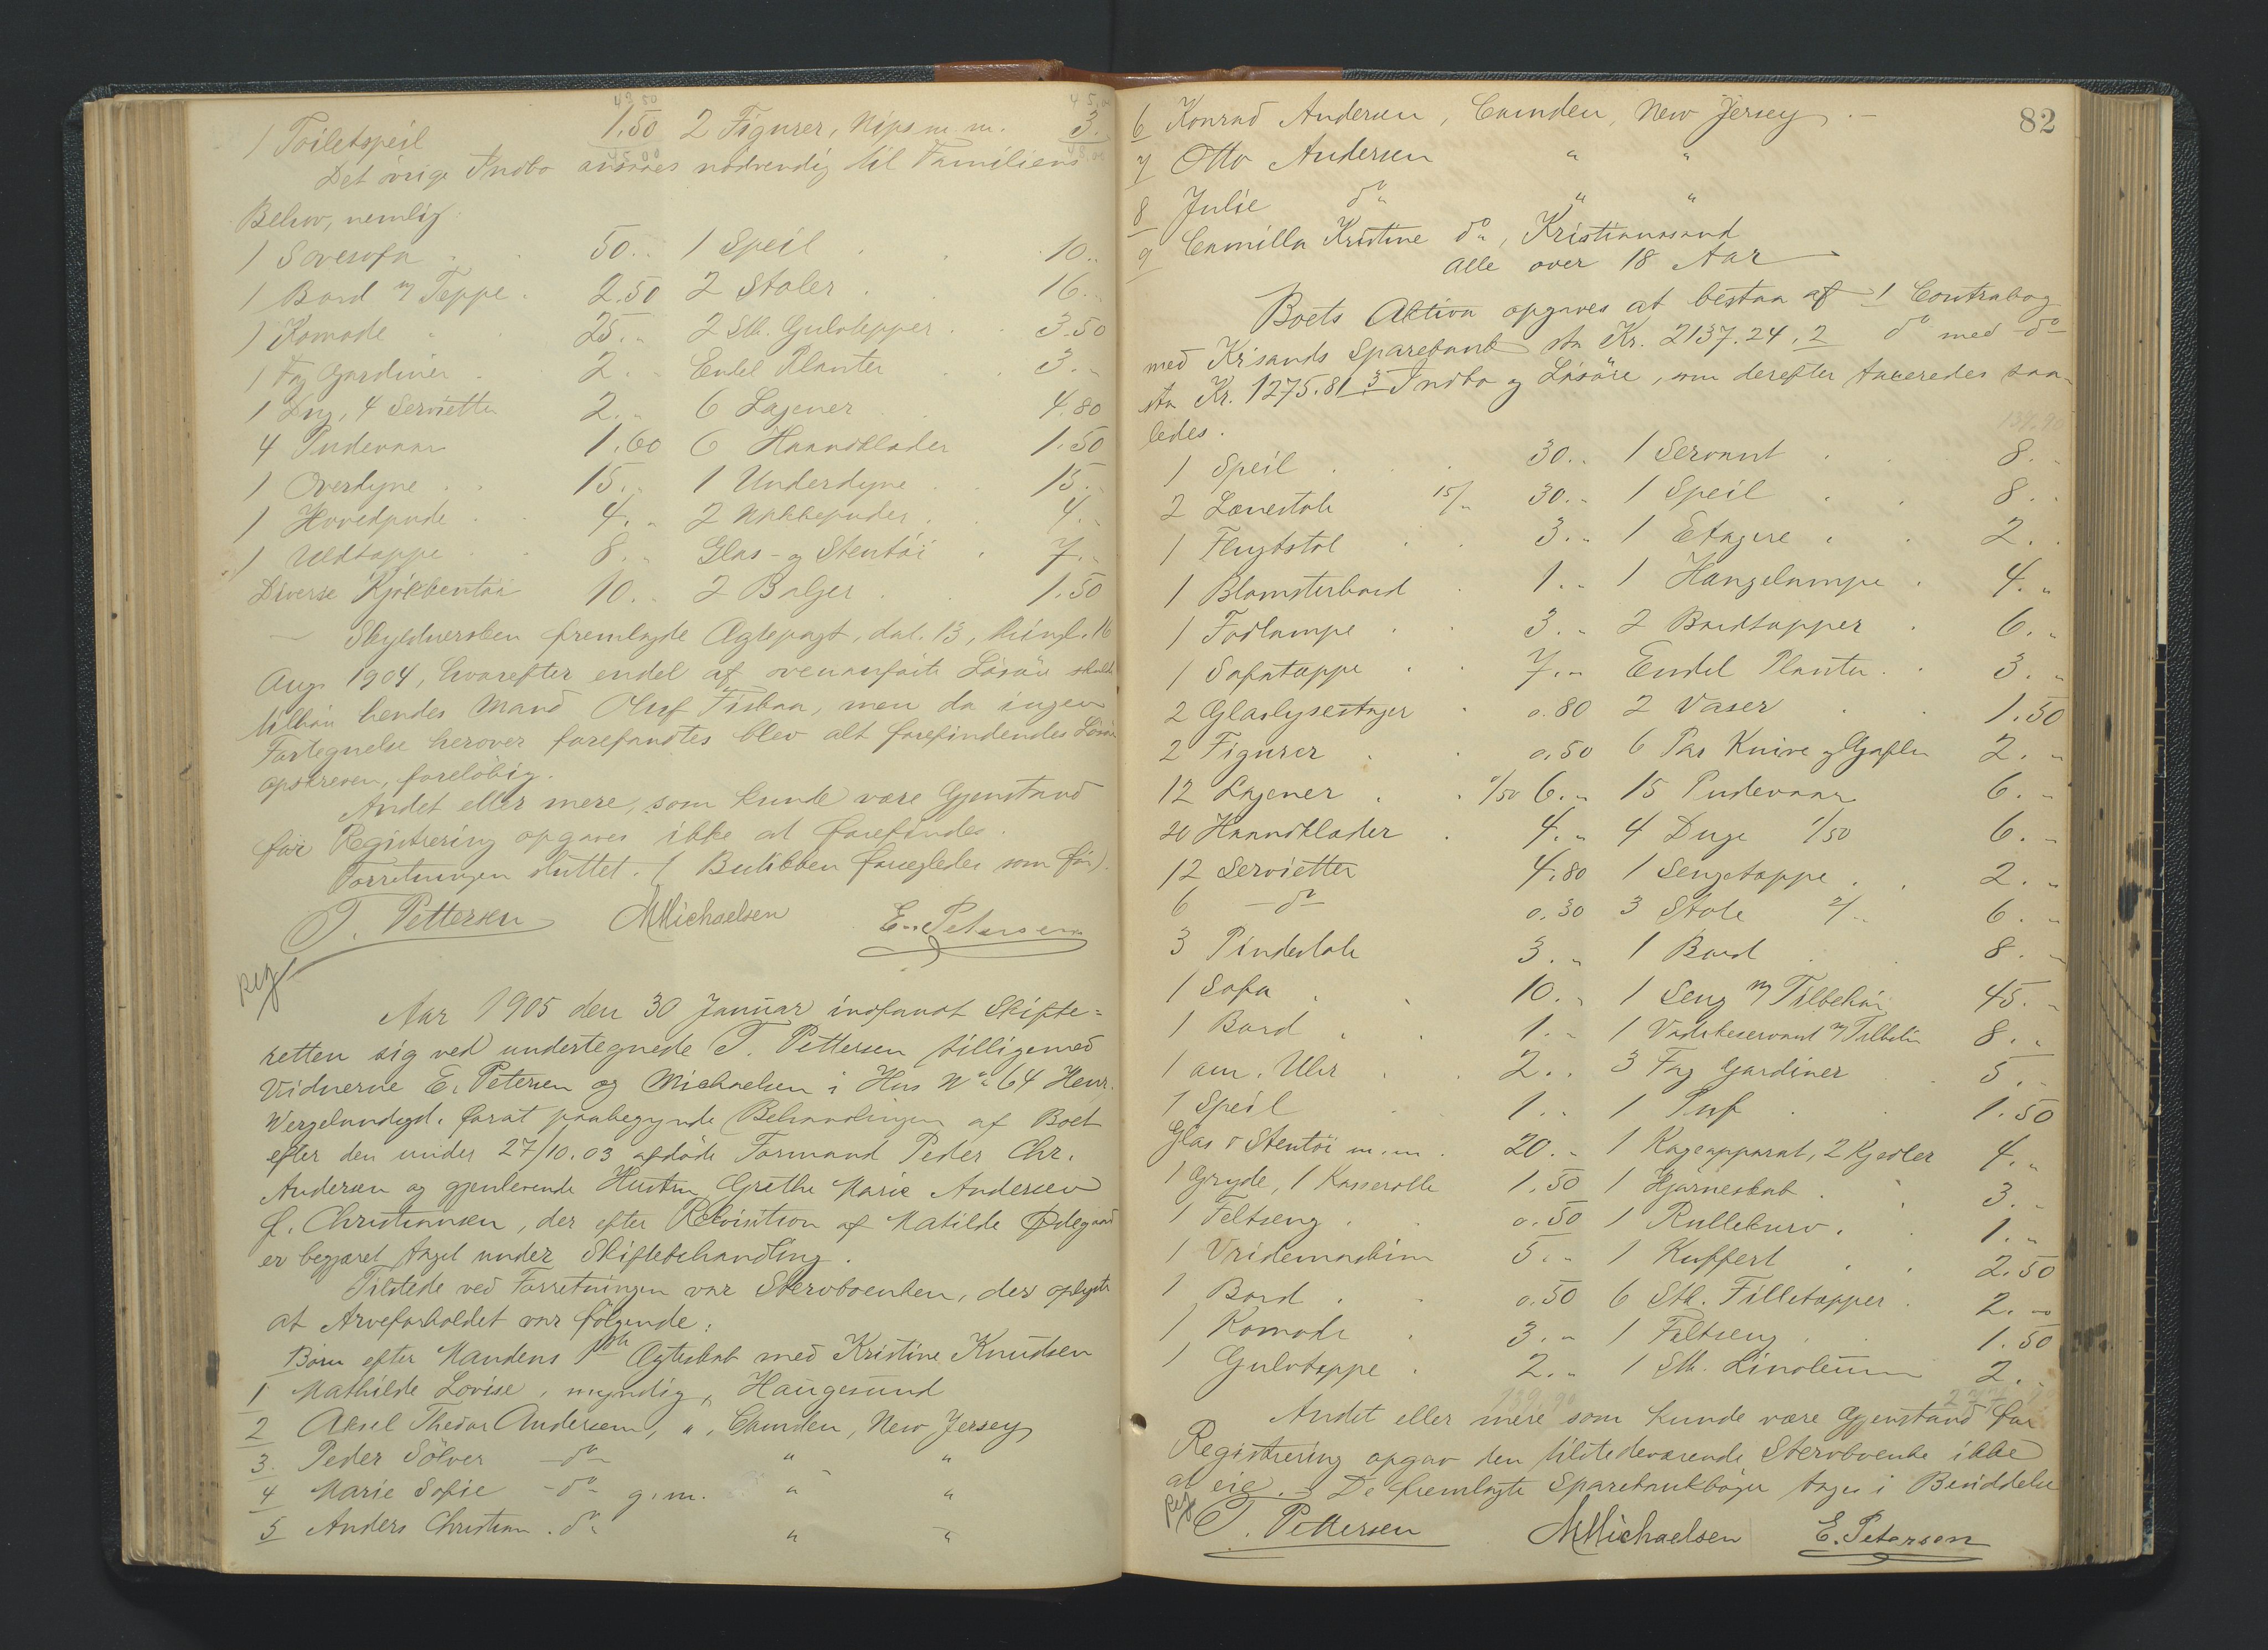 43.50 45.00
1 Toiletspeil 1.50 2 Figurer, Nips m. m. 3.
45.00 48.00
Det övrige Indbo ansaaes nödvendig til Familiens
Behov, nemlig:
1 Sovesofa 50.. 1 Speil 10..
1 Bord m/ Teppe 2.50 2 Stoler 16..
1 Komode 25.. 2 Stk. Gulvtepper 3.50
1 Fag Gardiner 2.. Endel Planter 3..
1 Dug, 4 Servietter 2.. 6 Lagener 4.80
4 Pudevaar 1.60 6 Haandklæder 1.50
1 Overdyne 15.. 1 Underdyne 15..
1 Hovedpude 4.. 2 Nakkepuder 4..
1 Uldtæppe 8.. Glas- og Stentöi 7..
Diverse Kjökkentöi 10.. 2 Baljer 1.50
— Skyldnersken fremlagde Ægtepagt, dat. 13, thingl. 16
Aug. 1904, hvorefter endel af ovenanförte Lösöre skulde
tilhöre hendes Mand Oluf Fiskaa, men da ingen
Fortegnelse herover forefandtes blev alt forefindendes Lösöre
opskreven, forelöbig.
Andet eller mere, som kunde være Gjenstand
för Registrering opgaves ikke at forefindes.
Forretningen sluttet. (Butikken forsegledes som för).
T. Pettersen MMichaelsen E. Petersen
Reg
Aar 1905 den 30 Januar indfandt Skifte=
retten sig ved undertegnede T. Pettersen tilligemed
Vidnerne E. Petersen og Michaelsen i Hus No 64 Henr.
Wergelandsgd. forat paabegynde Behandlingen af Boet
efter den under 27/10.03 afdöde Formand Peder Chr.
Andersen og gjenlevende Hustru Grethe Marie Andersen
f. Christiansen, der efter Rekvisition af Matilde Ødegaard
er begjæret taget under Skiftebehandling.
Tilstede ved Forretningen var Stervboenken, der oplyste
at Arveforholdet var fölgende:
Börn efter Mandens 1ste Ægteskab med Kristine Knudsen
1 Mathilde Lovise, myndig, Haugesund
2 Aksel Thedor Andersen, ", Camden, New Jersey
3. Peder Sölver do " "
4 Marie Sofie do g. m. " "
5 Anders Christian do " "
82
6 Konrad Andersen, Camden, New Jersey
7 Otto Andersen " "
8 Julie do " "
9 Camilla Kristine do, Kristianssand
alle over 18 Aar
Boets Aktiva opgaves at bestaa af 1 Contrabog
med Kr.sands Sparebank sta Kr. 2137.24, 2 do med do
sta Kr. 1275.81 3 Indbo og Lösöre, som derefter taxeredes saa-
ledes. 139.90
1 Speil 30.. 1 Servant 8..
2 Lænestole 15/.. 30.. 1 Speil 8..
1 Flugtstol 3.. 1 Etagere 2..
1 Blomsterbord 1.. 1 Hængelampe 4..
1 Fodlampe 3.. 2 Bordtæpper 6..
1 Sofatæppe 7.. Endel Planter 3..
2 Glaslysestager 0.80 2 Vaser 1.50
2 Figurer 0.50 6 Par Knive og Gafler 2..
12 Lagener "/50 6.. 15 Pudevaar 6..
20 Haandklæder 4.. 4 Duge 1/50 6..
12 Servietter 4.80 1 Sengetæppe 2..
6 do 0.30 3 Stole 2/.. 6..
3 Pindestole 3.. 1 Bord 8..
1 Sofa 10.. 1 Seng m/ Tilbehör 45..
1 Bord 1.. 1 Vadskeservant m/ Tilbehör 8..
1 am. Uhr 2.. 3 Fag Gardiner 5..
1 Speil 1.. 1 Puf 1.50
Glas & Stentöi m. m. 20.. 1 Kogeapparat, 2 Kjedler 4..
1 Gryde, 1 Kasserolle 1.50 1 Hjörneskab 3..
1 Feltseng 0.50 1 Rullekurv 1..
1 Vridemaskine 5.. 1 Kuffert 2.50
1 Bord 0.50 6 Stk. Filletæpper 2..
1 Komode 3.. 1 Feltseng 1.50
1 Gulvtæppe 2.. 1 Stk. Linoleum 2..
139.90
Andet eller mere som kunde være Gjenstand for
Registrering opgav den tilstedeværende Stervboenke ikke
at eie. — De fremlagte Sparebankböger toges i Besiddelse
Reg T. Pettersen MMichaelsen E. Petersen